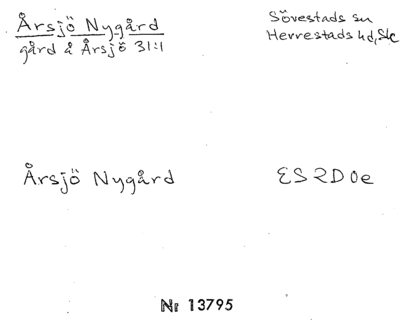 Årsjö Nygård
gård å Årsjö 31:1
Sövestads sn
Herrestads hd, Sk
Årsjö Nygård
ES 2D 0e
Nr 13795